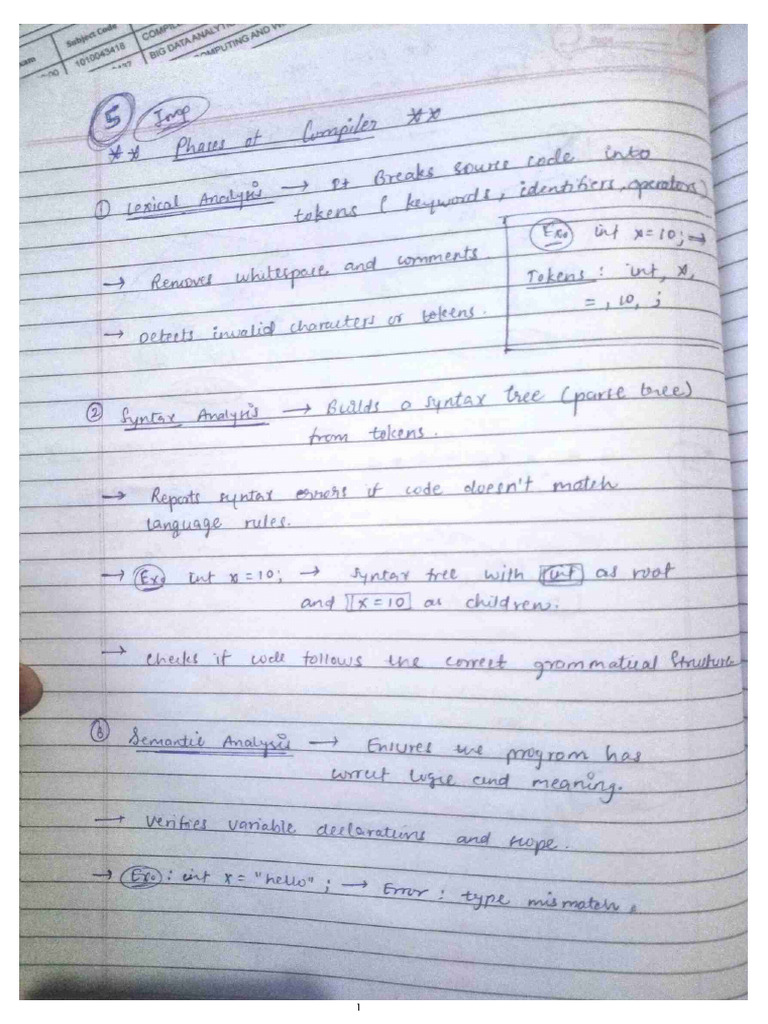 Subject Code
1010043418
COMPIL
BIG DATA ANALYTI
OMPUTING AND W
5 Imp
** Phases of Compiler **
① Lexical Analysis → It Breaks source code into
tokens ( keywords, identifiers, operators)
Ex. int x=10; →
Tokens : int, x,
=, 10, ;
→ Removes whitespace and comments.
→ Detects invalid characters or tokens.
② Syntax Analysis → Builds a syntax tree (parse tree)
from tokens.
→ Reports syntax errors if code doesn't match
language rules.
→ Ex. int x=10; → syntax tree with int as root
and x=10 as children.
→ checks if code follows the correct grammatical structure
③ Semantic Analysis → Ensures the program has
correct logic and meaning.
→ Verifies variable declarations and scope.
→ Ex. : int x = "hello" ; → Error : type mismatch.
1